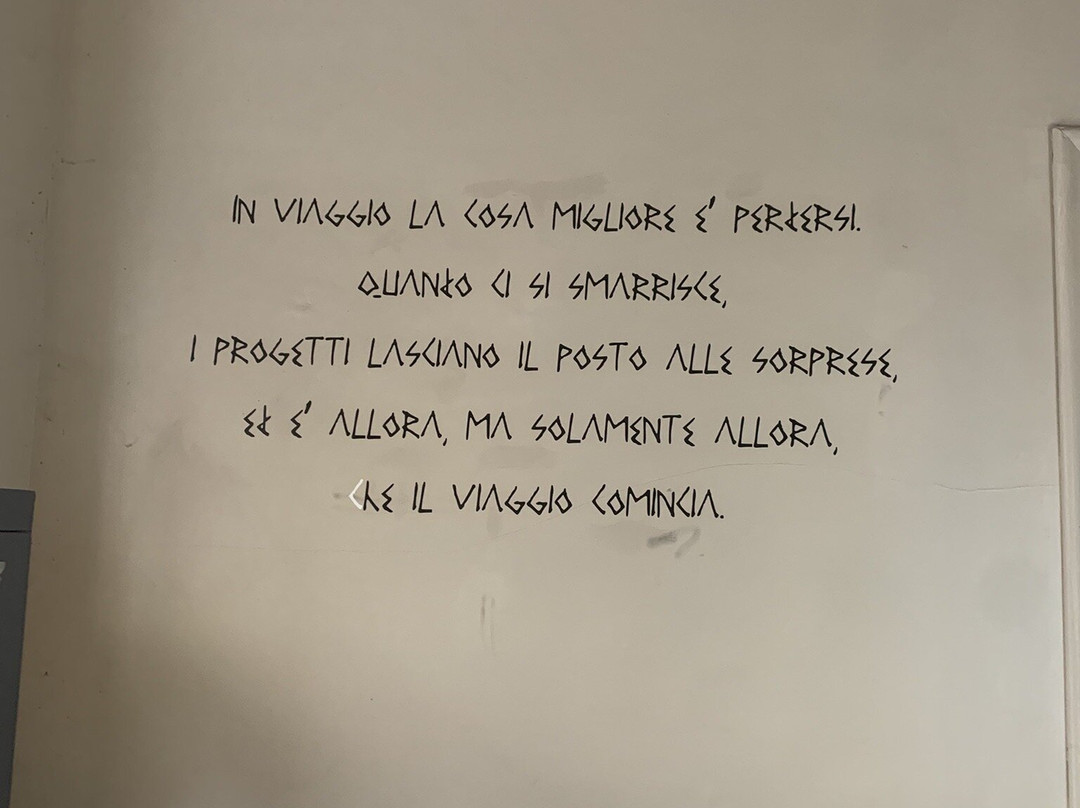 IN VIAGGIO LA COSA MIGLIORE E' PERdERSI.
QUANdO CI SI SMARRISCE,
I PROGETTI LASCIANO IL POSTO ALLE SORPRESE,
Ed E' ALLORA, MA SOLAMENTE ALLORA,
ChE IL VIAGGIO COMINCIA.